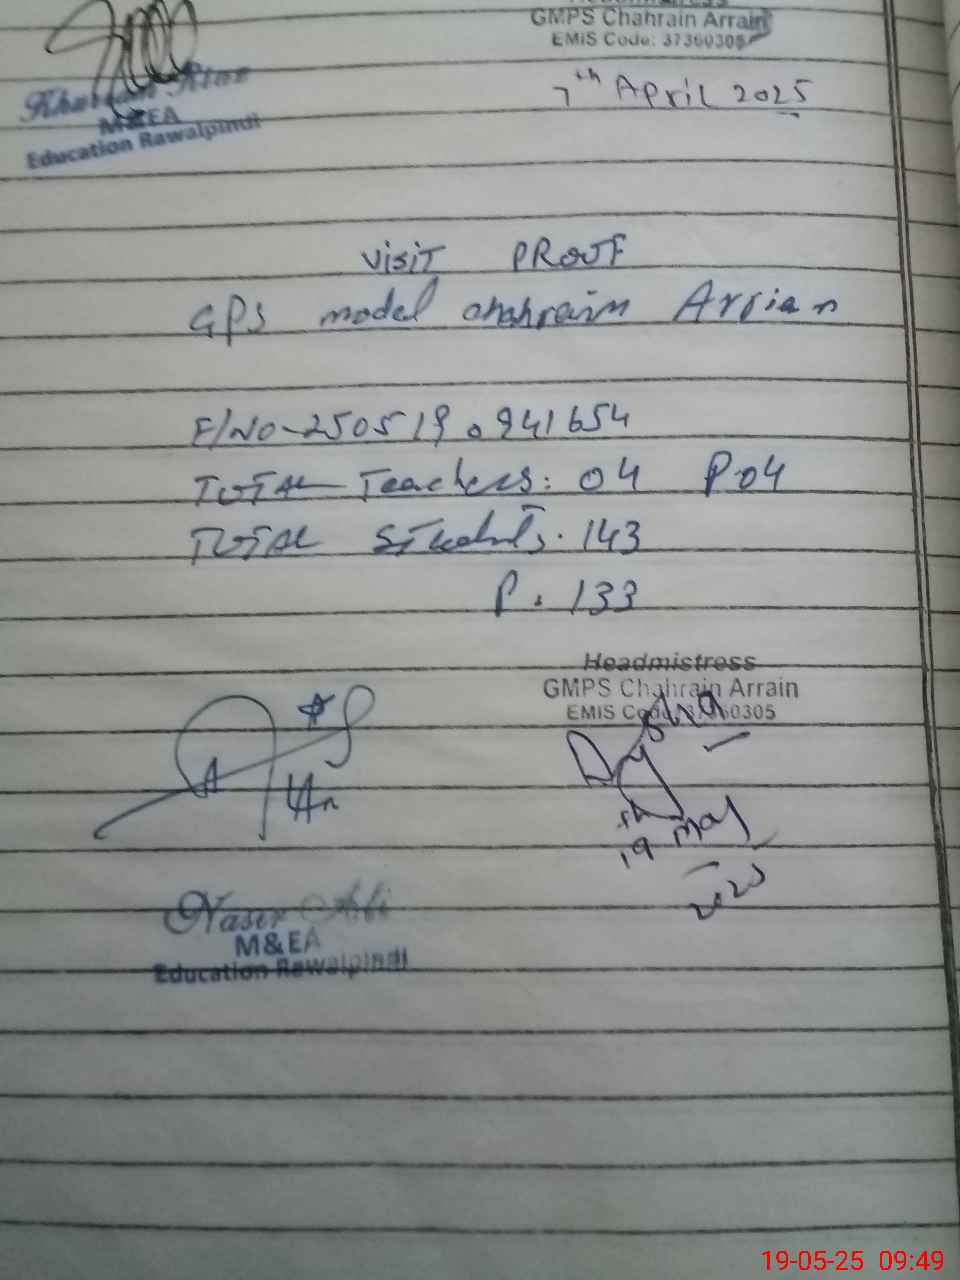 Headmistress
GMPS Chahrain Arrain
EMIS Code: 37360305
7th April 2025
M&EA
Education Rawalpindi
VISIT PROOF
GPS model chahrain Arrian
F/NO-250519.941654
TOTAL Teachers: 04 P04
TOTAL Students. 143
P. 133
Headmistress
GMPS Chahrain Arrain
EMIS Code: 37360305
19th May
2025
Nasir Ali
M&EA
Education Rawalpindi
19-05-25 09:49